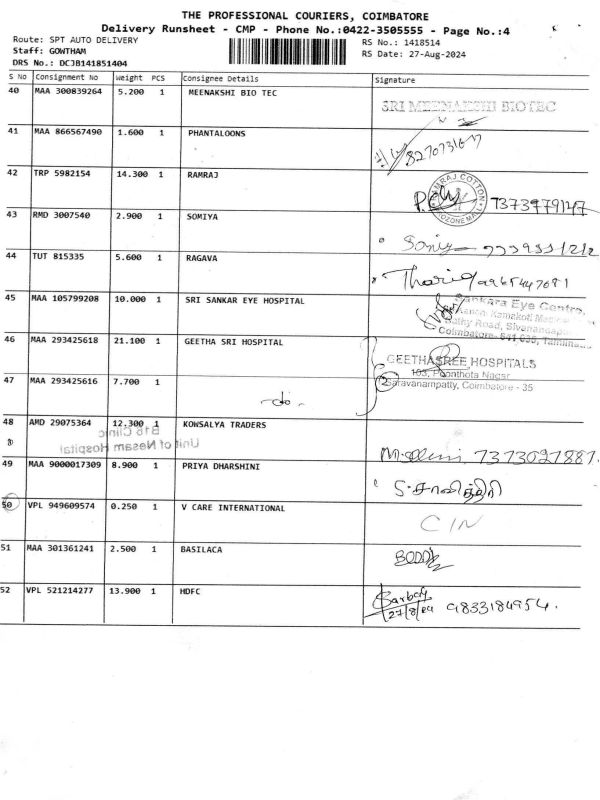 THE PROFESSIONAL COURIERS, COIMBATORE
Delivery Runsheet - CMP - Phone No.:0422-3505555 - Page No.:4
Route: SPT AUTO DELIVERY RS No.: 1418514
Staff: GOWTHAM RS Date: 27-Aug-2024
DRS No.: DCJB141851404
S No Consignment No Weight PCS Consignee Details Signature
40 MAA 300839264 5.200 1 MEENAKSHI BIO TEC
SRI MEENAKSHI BIOTEC
41 MAA 866567490 1.600 1 PHANTALOONS
42 TRP 5982154 14.300 1 RAMRAJ
RAMRAJ COTTON
7373979147
43 RMD 3007540 2.900 1 SOMIYA
44 TUT 815335 5.600 1 RAGAVA
45 MAA 105799208 10.000 1 SRI SANKAR EYE HOSPITAL
Sankara Eye Centre,
Sathy Road, Sivanandapuram
Coimbatore- 641 035, Tamilnadu
46 MAA 293425618 21.100 1 GEETHA SRI HOSPITAL
GEETHASREE HOSPITALS
103, Nagar
47 MAA 293425616 7.700 1
Saravanampatty, Coimbatore - 35
-do-
48 AMD 29075364 12.300 1 KOWSALYA TRADERS
B16 Clinic
Unit of Nesam Hospital
7373027887.
49 MAA 9000017309 8.900 1 PRIYA DHARSHINI
S. சாவித்திரி
50 VPL 949609574 0.250 1 V CARE INTERNATIONAL
C/N
51 MAA 301361241 2.500 1 BASILACA
52 VPL 521214277 13.900 1 HDFC
27/8/24 9833184954.